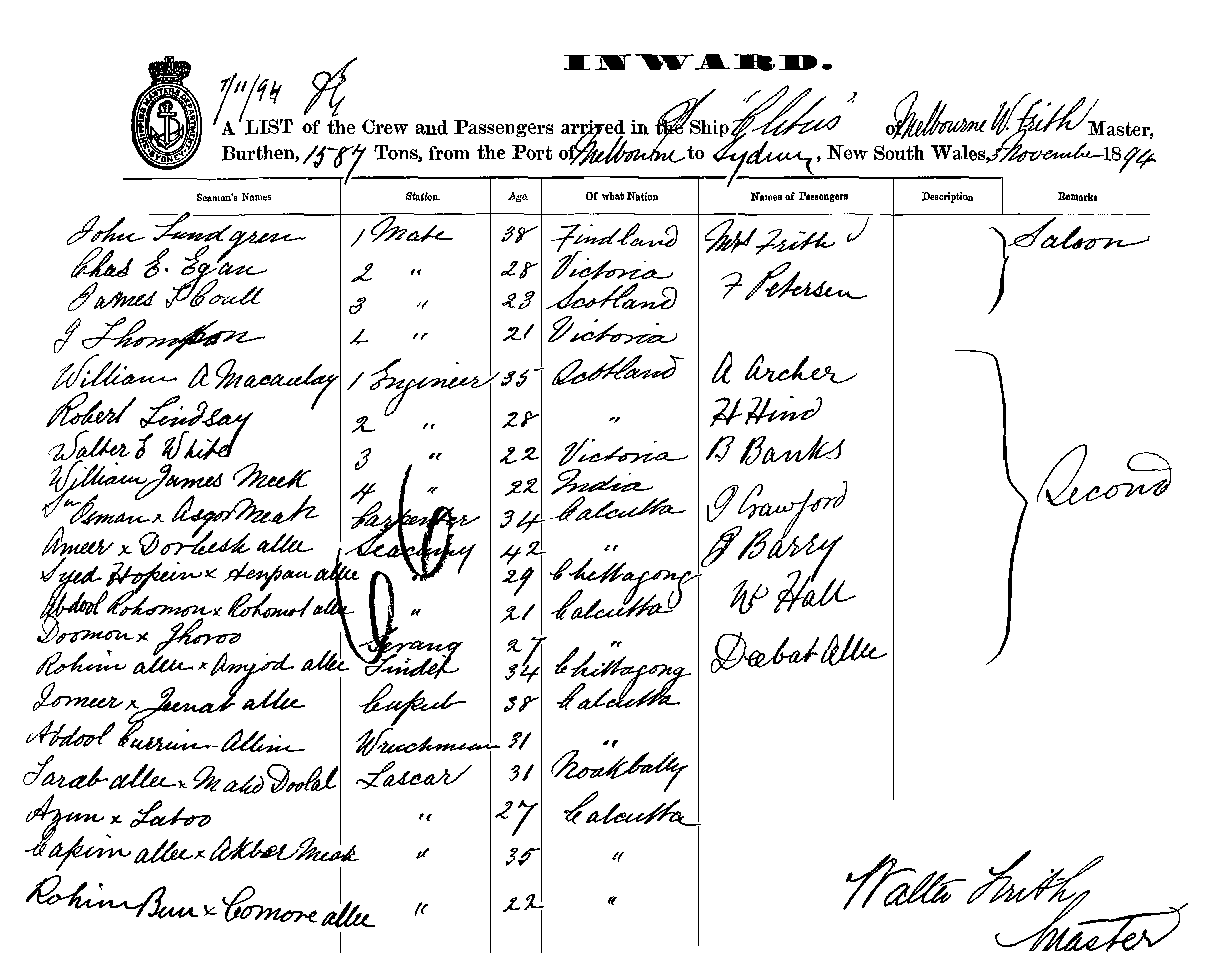 INWARD.
7/11/94
A LIST of the Crew and Passengers arrived in the Ship "Clitus" of Melbourne W. Frith Master,
Burthen, 1587 Tons, from the Port of Melbourne to Sydney, New South Wales, 5 November 1894
Seaman's Names Station Age Of what Nation Names of Passengers Description Remarks
John Lundgren 1 Mate 38 Findland Mrs Frith Saloon
Chas E. Egan 2 " 28 Victoria
James Coull 3 " 23 Scotland F Petersen
J Thompson 4 " 21 Victoria
William A Macaulay 1 Engineer 35 Scotland A Archer
Robert Lindsay 2 " 28 " H Hind
Walter E White 3 " 22 Victoria B Banks
William James Meek 4 " 22 India Second
Osman x Asgor Meah Carpenter 34 Calcutta J Crawford
Ameer x Dorbesh allee Seacunny 42 " J Barry
Syed Hosein x Henpan allee " 29 Chittagong
Abdool Rohomon x Rohomot allee " 21 Calcutta W Hall
Doomon x Jhoroo Serang 27 "
Rohim allee x Amjod allee Tindel 34 Chittagong Dabat Allee
Jomeer x Jeenat allee 38 Calcutta
Abdool Currim Allim Winchman 31 "
Tarab allee x Mahd Doolal Lascar 31 Noakbally
Azim x Latoo " 27 Calcutta
Casim allee x Akbar Meah " 35 "
Rohim Bux x Comore allee " 22 "
Walter Frith
Master